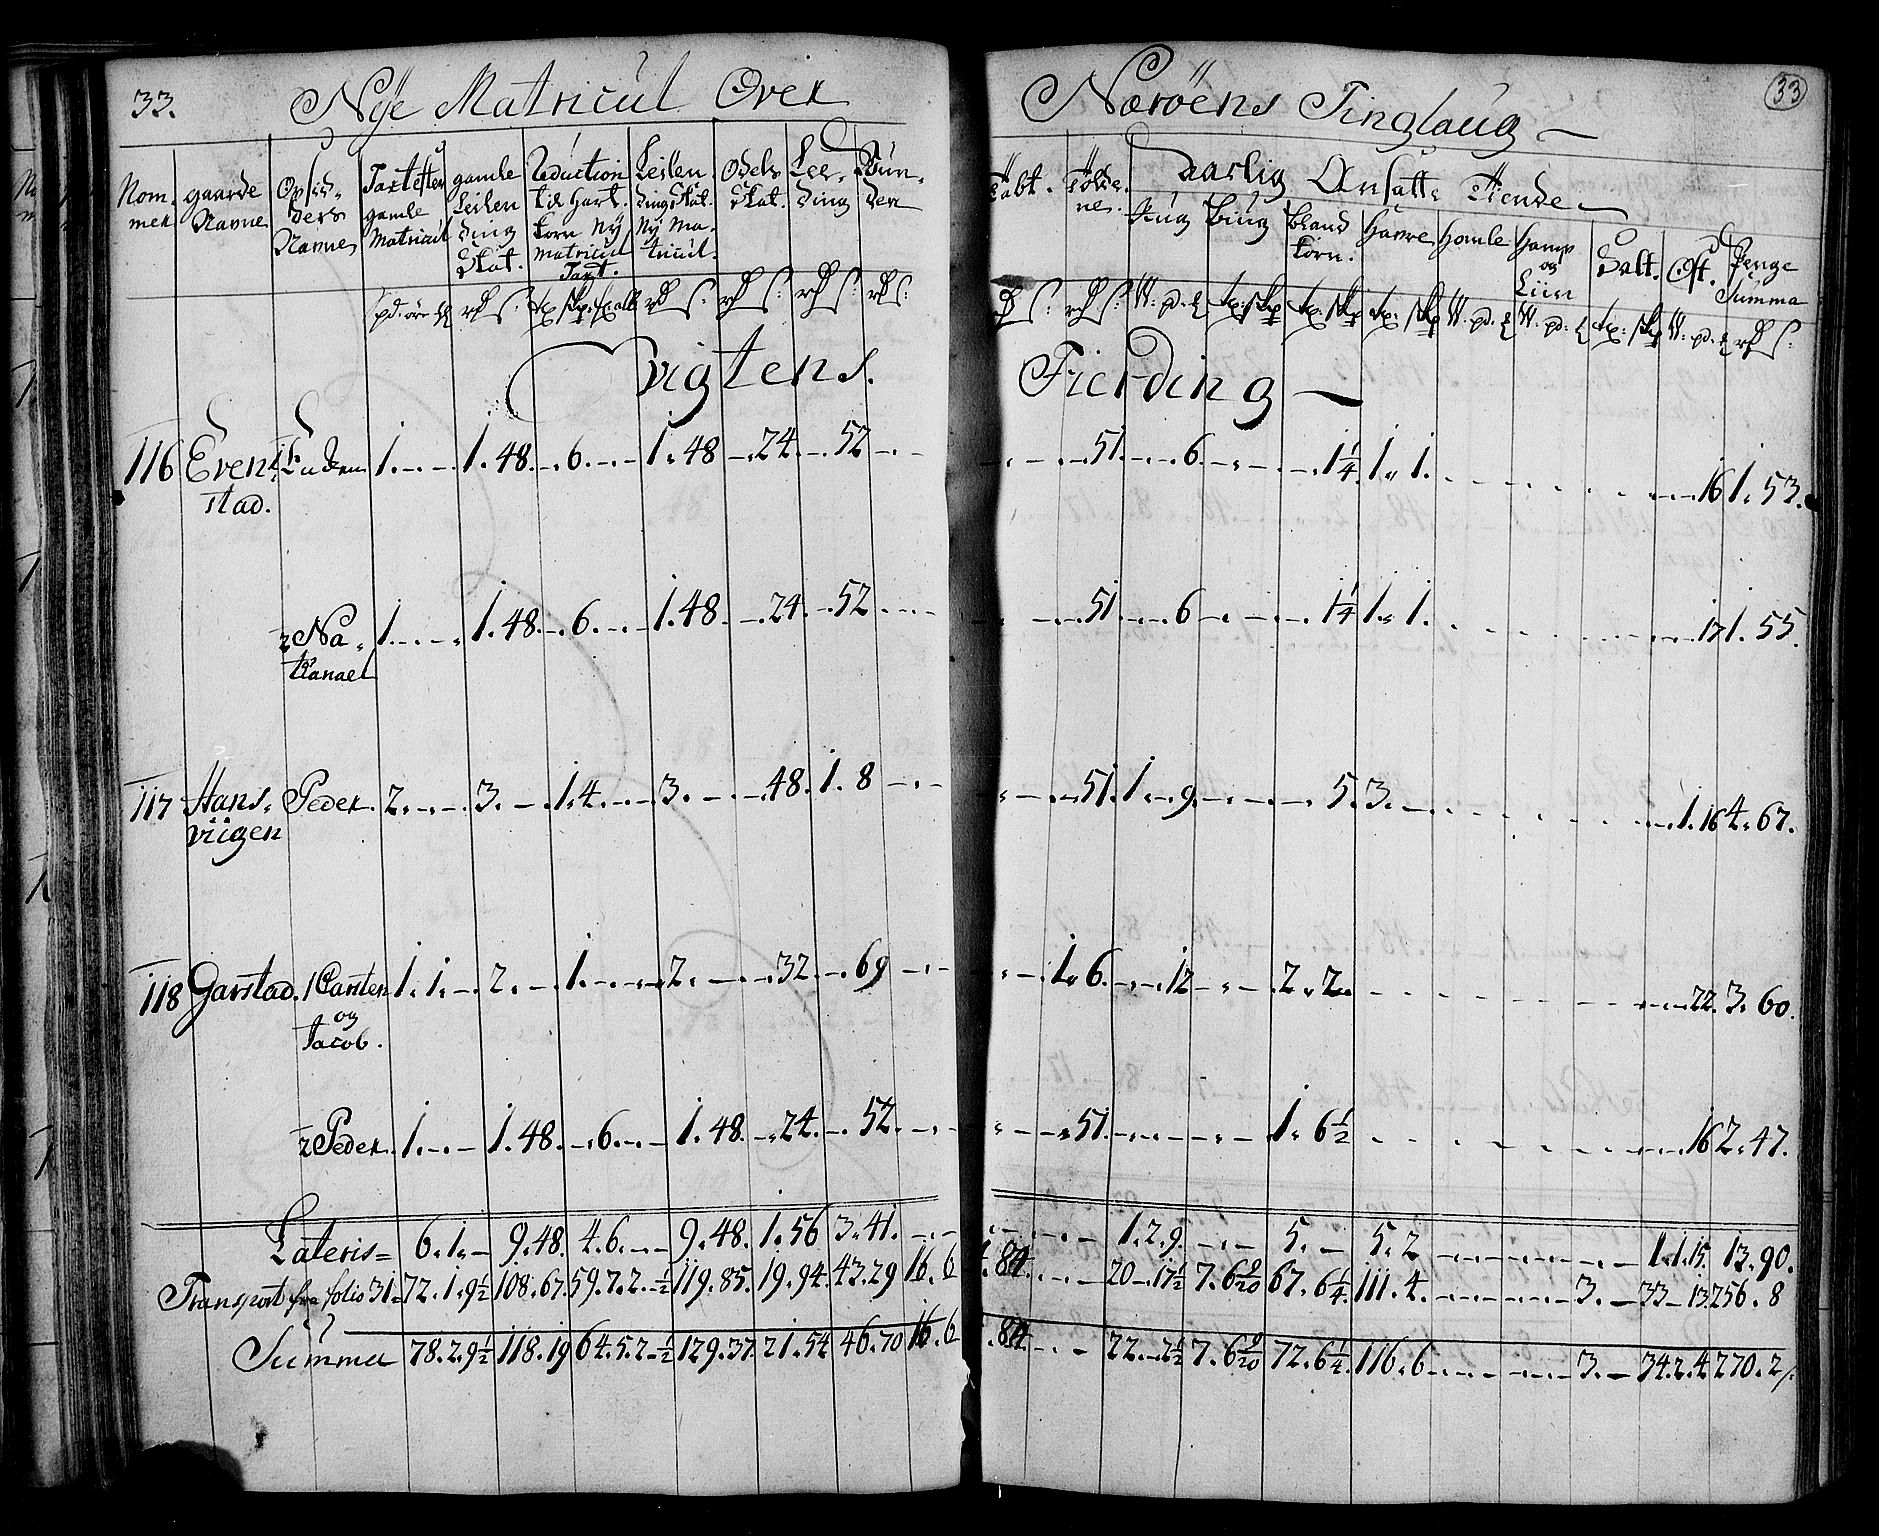 33. Nÿe Matricul Over Nærøens Tinglaug 33
Nom- mer gaarde Navne Opsid- ders Navne Taxt efter gamle Matricul gamle Leilen ding Skat. Reduction til Hart- korn Nÿ matricul Taxt. Leilen dings Skat. Nÿ Ma- tricul. Odels Skat. Lee- ding
Aarlig Ansatte Tiende
Rug Biug bland korn. Havre Homle Hamp og Liin Salt. Ost. Penge Summa
Vigtens Fierding
116 Even- stad. 1. 1. 48. 6. 1. 48 24. 52 51. 6. 1¼. 1. 1. 16 1. 53.
2 Na- thanael 1. 1. 48. 6. 1. 48. 24. 52 51 6 1¼ 1. 1. 17 1. 55.
117 Hans- viigen Peder. 2. 3. 1. 4. 3. 48. 1. 8 51. 1. 9. 5. 3. 1. 16 4. 67.
118 Garstad. 1 Carsten og Jacob. 1. 1. 2. 1. 2. 32 69 1. 6. 12 2. 2. 22. 3. 60.
2 Peder. 1. 1. 48. 6. 1. 48. 24. 52. 51. 1. 6½ 16 2. 47.
Lateris= 6. 1. 9. 48. 4. 6. 9. 48. 1. 56 3. 41. 1. 2. 9. 5. 5. 2 1. 1. 15. 13. 90.
Transport fra folio 31= 72. 1. 9½ 108. 67. 59. 7. 2. ½ 119. 85. 19. 94. 43. 29 16. 6 84. 20 17½ 7. 6 9/20 67. 6¼ 111. 4. 3. 33 13. 256. 8
Summa 78. 2. 9½ 118. 19 64. 5. 2 ½ 129. 37. 21. 54 46. 70 16. 6 84. 22. 2½ 7. 6 9/20 72. 6¼. 116. 6 3. 34. 2. 4 270. 2